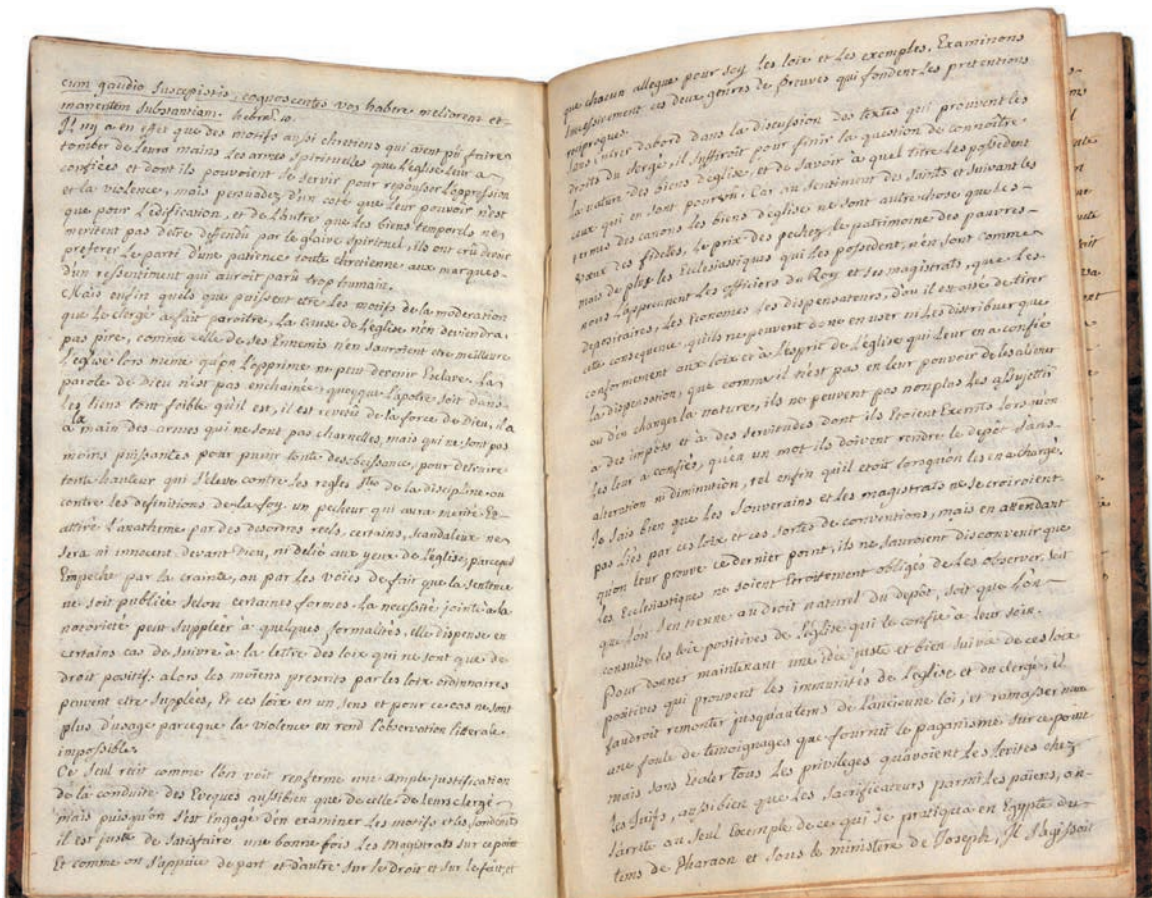 cum gaudio suscepistis, cognoscentes vos habere meliorem et
manentem substantiam. hebr. 10.
Il ny a en effet que des motifs aussi chretiens qui aient pû faire
tomber de leurs mains les armes spirituelles que l'église leur a
confiées et dont ils pouvoient se servir pour repousser l'oppression
et la violence, mais persuadez d'un coté que leur pouvoir n'est
que pour l'édification, et de l'autre que les biens temporels ne
meritent pas d'etre defendu par le glaive spirituel, ils ont crû devoir
preferer le parti d'une patience toute chretienne aux marques
d'un ressentiment qui auroit parû trop humain.
Mais enfin quels que puissent etre les motifs de la moderation
que le clergé a fait paroitre, la cause de l'eglise n'en deviendra
pas pire, comme celle de ses Ennemis n'en sauroient etre meilleure
l'eglise lors meme qu'on l'opprime ne peut devenir Esclave. La
parole de Dieu n'est pas enchainée, quoyque l'apotre soit dans
les liens tout foible qu'il est, il est revetû de la force de Dieu, il a
a la main des armes qui ne sont pas charnelles, mais qui ne sont pas
moins puissantes pour punir toute desobeissance, pour detruire
toute hauteur qui s'eleve contre les regles de la discipline ou
contre les definitions de la foy. un pecheur qui aura merité
attiré l'anatheme par des desordres reels, certains, scandaleux ne
sera ni innocent devant Dieu, ni delié aux yeux de l'église, parcequ'il
Empeche par la crainte, ou par les voïes de fait que la sentence
ne soit publiée selon certaines formes. la necessité jointe a la
notorieté peut suppleer à quelques formalités, elle dispense en
certains cas de suivre à la lettre des loix qui ne sont que de
droit positif. alors les moïens prescrits par les loix ordinaires
peuvent etre supplées, Et ces loix en un sens et pour ce cas ne sont
plus d'usage parceque la violence en rend l'observation litterale
impossible.
Ce seul recit comme l'on voit renferme une ample justification
de la conduite des Eveques aussibien que de celle de leurs clergé
mais puisqu'on s'est Engagé d'en examiner les motifs et les fondemts
il est juste de satisfaire une bonne fois les Magistrats sur ce point
Et comme on s'appuie de part et d'autre sur le droit et sur le fait, et
que chacun allegue pour soy les loix et les exemples. Examinons
successivement ces deux genres de preuves qui fondent les pretentions
reciproques.
Sans entrer dabord dans la discussion des textes qui prouvent les
droits du clergé, il suffiroit pour finir la question de connoître
la nature des biens d'eglise, et de savoir à quel titre les possedent
ceux qui en sont pourvû. Car au sentiment des saints et suivant les
termes des canons les biens d'eglise ne sont autre chose que les
voeux des fideles, le prix des pechez, le patrimoine des pauvres
mais de plus les Ecclesiastiques qui les possedent, n'en sont comme
nous l'aprennent les officiers du Roy et ses magistrats, que les
depositaires, les Economes, les dispensateurs, d'ou il est aisé de tirer
cette consequence qu'ils ne peuvent donc en user ni les distribuer que
conformement aux loix et à l'esprit de l'eglise qui leur en a confié
la dispensation, que comme il n'est pas en leur pouvoir de les aliener
ou d'en changer la nature, ils ne peuvent pas nonplus les assujettir
a des impôts et à des servitudes dont ils Etoient Exemts lors qu'on
les leur a confiés, qu'en un mot ils doivent rendre le depôt sans
alteration ni diminution, tel enfin qu'il etoit lorsqu'on les en a chargé.
Je sais bien que les souverains et les magistrats ne se croiroient
pas liés par ces loix et ces sortes de conventions, mais en attendant
qu'on leur prouve ce dernier point, ils ne sauroient disconvenir que
les Ecclesiastiques ne soient Etroitement obligés de les observer, soit
que l'on s'en tienne au droit naturel du depôt, soit que l'on
consulte les loix positives de l'église qui le confie à leur soin.
Pour donner maintenant une idée juste et bien suivie de ces loix
positives qui prouvent les immunités de l'église et du clergé, il
faudroit remonter jusqu'au tems de l'ancienne loi, et ramasser
une foule de temoignages que fournit le paganisme sur ce point
mais sans Etaler tous les privileges qu'avoient les levites chez
les Juifs, aussibien que les sacrificateurs parmi les païens, on
s'arrete au seul Exemple de ce qui se pratiqua en Egypte du
tems de Pharaon et sous le ministere de Joseph. Il s'agissoit